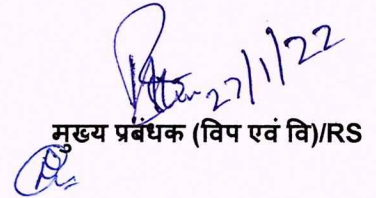 27/1/22
मुख्य प्रबंधक (विप एवं वि)/RS